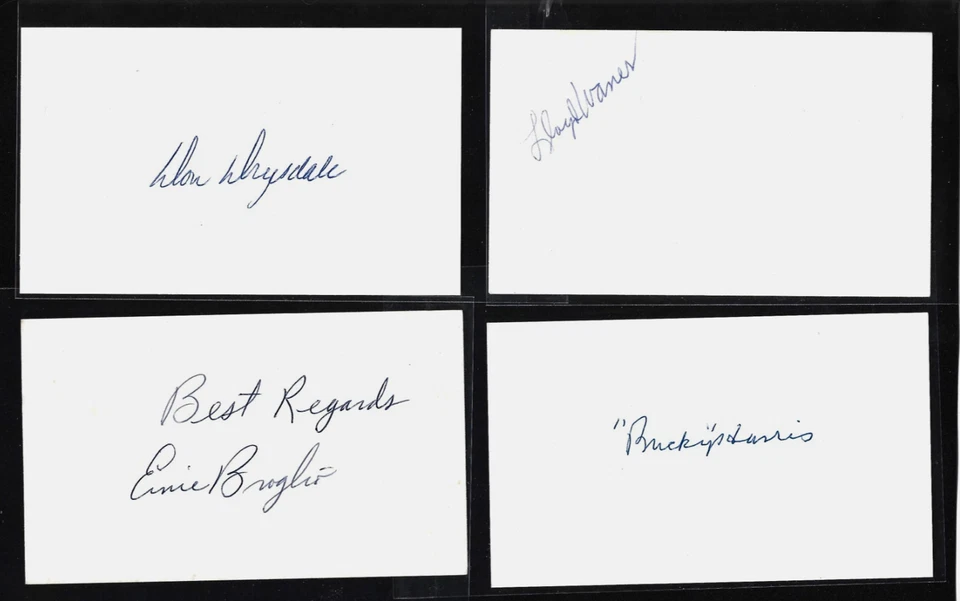 Don Drysdale
Lloyd Waner
Best Regards
Ernie Broglio
"Bucky" Harris